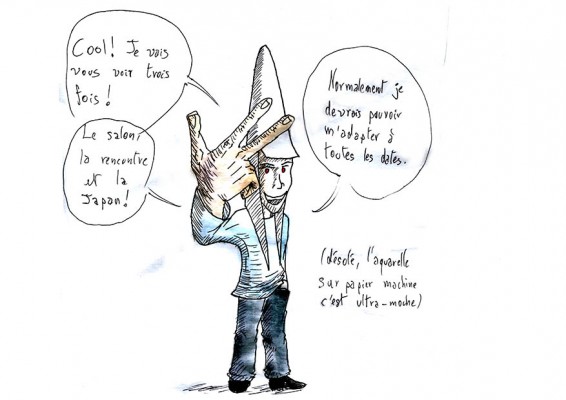 Cool! Je vais
vous voir trois
fois!
Le salon,
la rencontre
et la
Japan!
Normalement je
devrais pouvoir
m'adapter à
toutes les dates.
(désolé, l'aquarelle
sur papier machine
c'est ultra-moche)